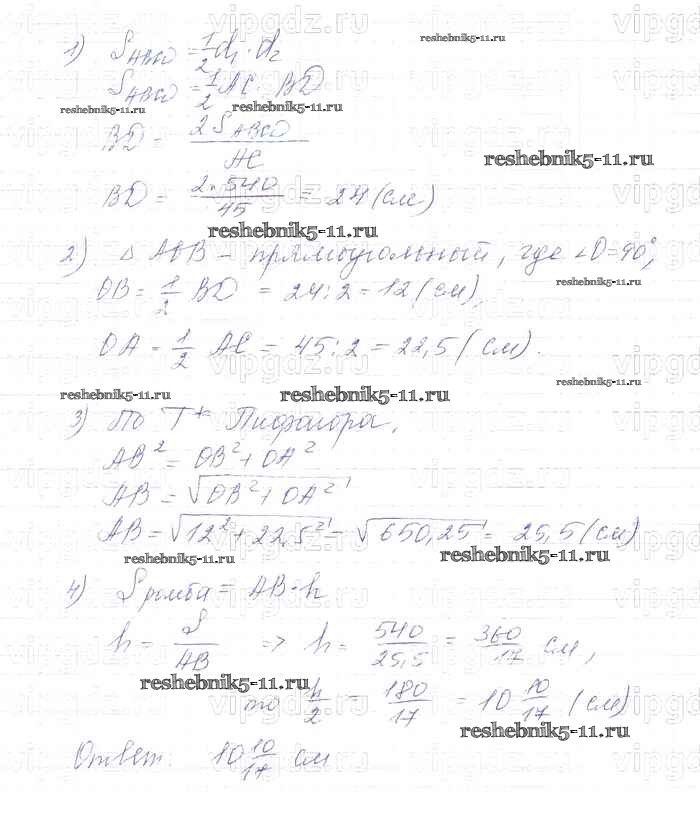 1) S_ABCD = 1/2 d₁ · d₂
reshebnik5-11.ru
S_ABCD = 1/2 AC · BD
reshebnik5-11.ru
reshebnik5-11.ru
BD = 2 S_ABCD / AC
reshebnik5-11.ru
BD = 2·540 / 45 = 24 (см)
reshebnik5-11.ru
2) △ AOB – прямоугольный, где ∠O=90°,
reshebnik5-11.ru
OB = 1/2 BD = 24:2 = 12 (см),
OA = 1/2 AC = 45:2 = 22,5 (см).
reshebnik5-11.ru
reshebnik5-11.ru
reshebnik5-11.ru
3) По Т* Пифагора,
AB² = OB² + OA²
AB = √(OB² + OA²)
AB = √(12² + 22,5²) = √650,25 = 25,5 (см)
reshebnik5-11.ru
reshebnik5-11.ru
4) S ромба = AB · h
h = S / AB => h = 540 / 25,5 = 360 / 17 см,
reshebnik5-11.ru
то h/2 = 180/17 = 10 10/17 (см)
reshebnik5-11.ru
Ответ: 10 10/17 см
vipgdz.ru